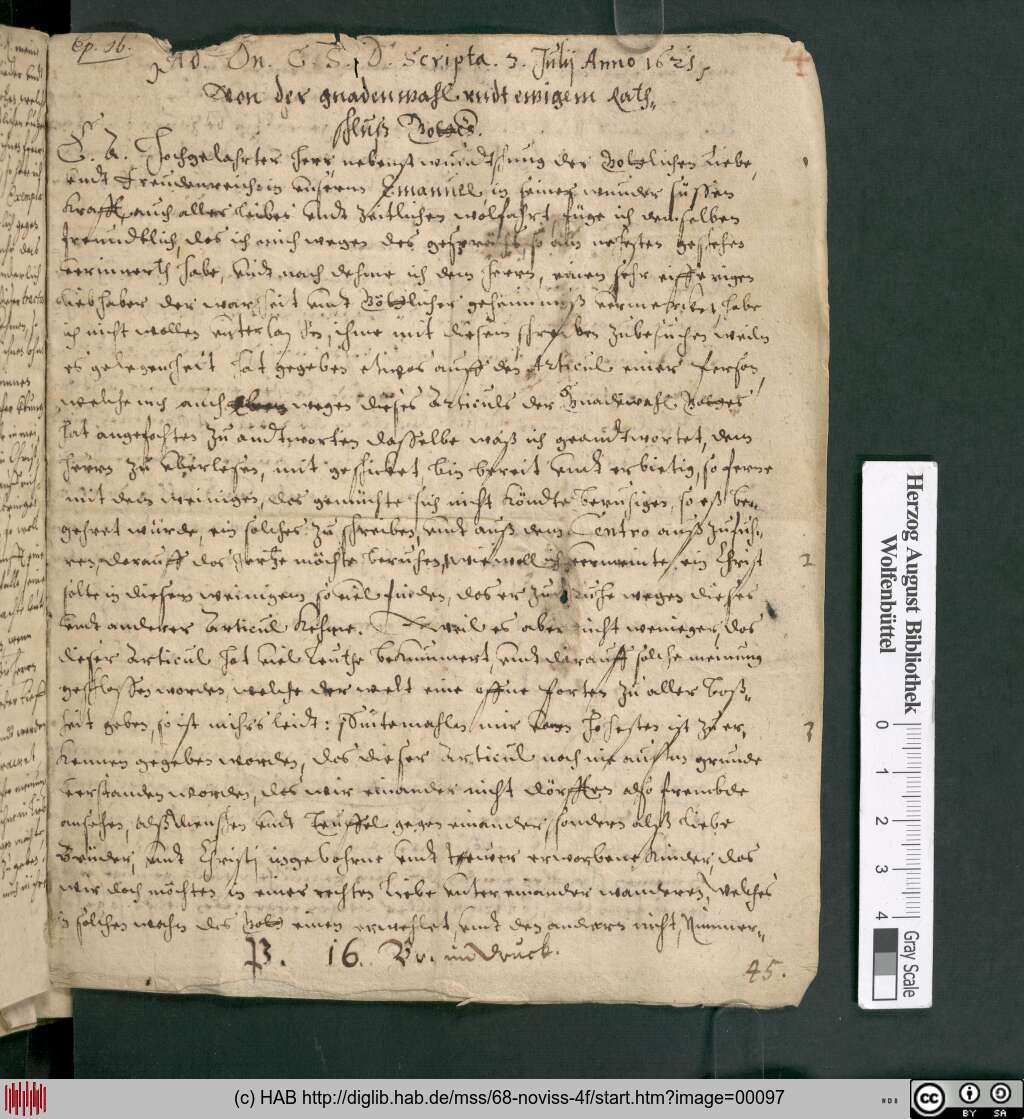 Ep. 16.
Ad. Dn. C. S. D. Scripta. 3. Julij Anno 1621
Von der gnadenwahl undt ewigem Rath-
schluß Gottes.
E. A. Hochgelahrter Herr nebenst wundtschung der Göttlichen Liebe,
undt freudenreich in unserm Emanuel in seiner wunder süssen
Krafft, auch aller Leibes undt zeitlichen wolfahrt, füge ich demselben
freundtlich, das ich mich wegen des gesprächs, so am nehesten geschehen
erinnerth habe, undt nach dehme ich den Herrn, einen sehr eifferigen
Liebhaber der warheit undt Göttlicher geheimnuß vermercket, habe
ich nicht wollen unterlassen, ihme mit diesem schreiben zubesuchen, weiln
es gelegenheit hat gegeben etwas auff den Articul einer Person,
welche mich auch wegen dieses Articuls der Gnadenwahl Gottes
hat angefochten zu andtworten dasselbe waß ich geandtwortet, dem
Herrn zu uberlesen, mit geschicket, bin bereit undt erbietig, so ferne
mit dem weinigen, das gemüthe sich nicht köndte beruhigen, so eß be-
gehret würde, ein solches zu schreiben, undt auß dem Centro auß zufüh-
ren, darauff das Hertze möchte beruhen, wie woll ich vermeinte, ein Christ
solte in diesem weinigem so viel finden, das er zur Ruhe wegen dieses
undt anderer Articul kehme. Dieweil es aber nicht weniger, das
dieser Articul hat viel Leuthe bekümmert, undt darauff solche meinung
geschlossen worden, welche der welt eine offne Porten zu aller Boß-
heit geben, so ist michs leidt: Sintemahlen mir vom Höhesten ist zu er-
kennen gegeben worden, das dieser Articul noch nie auß m grunde
verstanden worden, das wir einander nicht dörfften also frembde
ansehen, alß Menschen undt Teuffel gegen einander, sondern alß Liebe
Brüder, undt Christi ingebohrne undt theuer erworbene Kinder, das
wir doch möchten in einer rechten Liebe unter einander wanderen, welches
in solchen wahn das Gott einen erwehlet, undt den andern nicht, Nimmer-
P. 16. Br. im Druck.
45.
2
3
Herzog August Bibliothek
Wolfenbüttel
0 1 2 3 4
Gray Scale
(c) HAB http://diglib.hab.de/mss/68-noviss-4f/start.htm?image=00097
cc BY SA